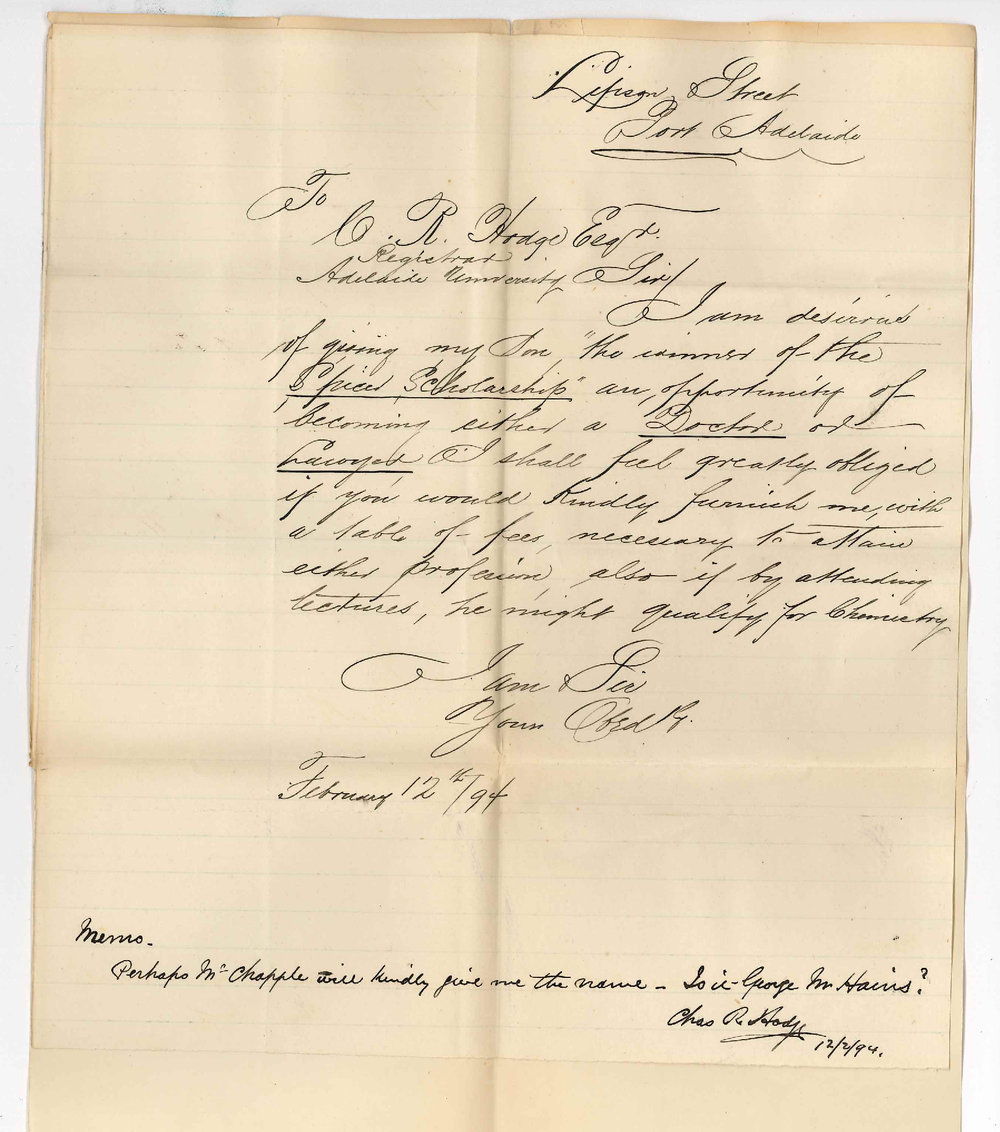 Lipson Street
Port Adelaide
To
C. R. Hodge Esqr.
Registrar
Adelaide University Sir/
I am desirous
of giving my Son, "the winner of the
Spicer Scholarship" an, opportunity of
becoming either a Doctor or
Lawyer I shall feel greatly obliged
if you would Kindly furnish me, with
a table of fees, necessary to attain
either profession, also if by attending
lectures, he might qualify for Chemistry
I am Sir
Yours Obed
February 12th/94
Memo.
Perhaps Mr Chapple will kindly give me the name - Is it George M Hains?
Chas R. Hodge
12/2/94.